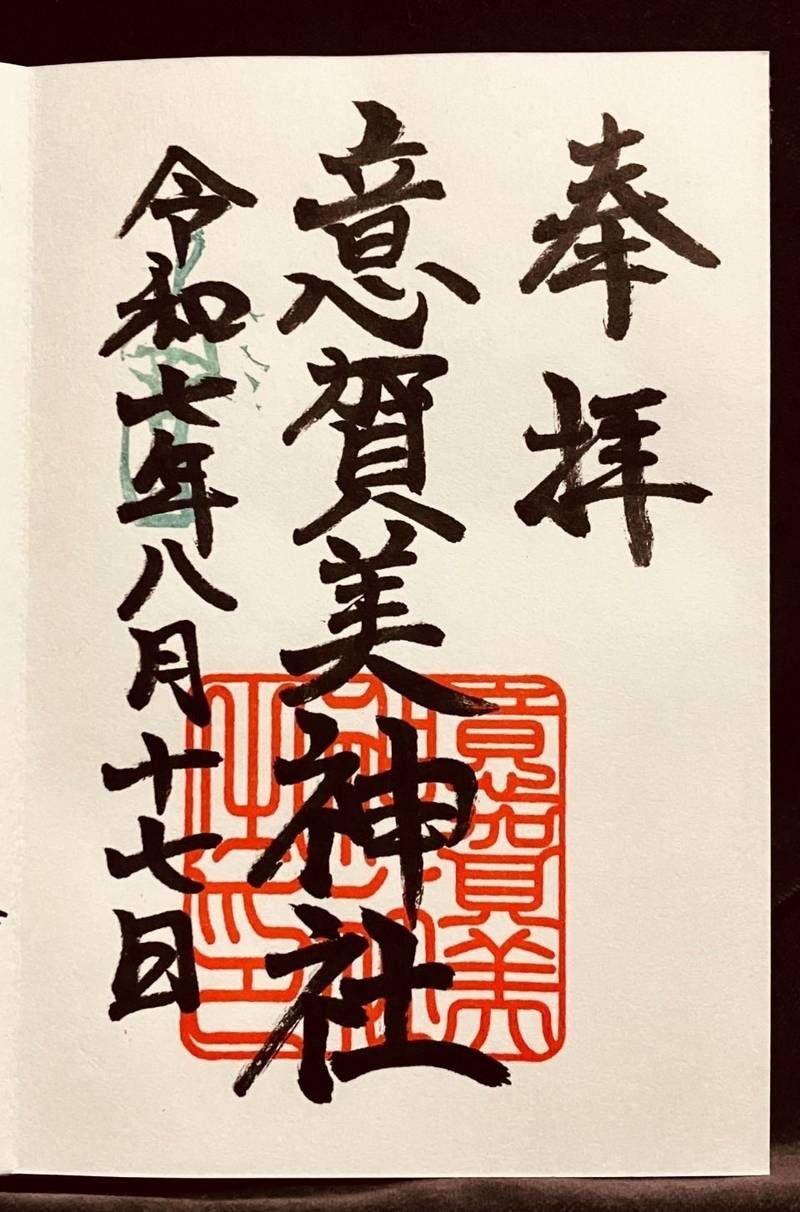 奉拝
意賀美神社
令和七年八月十七日
意賀美